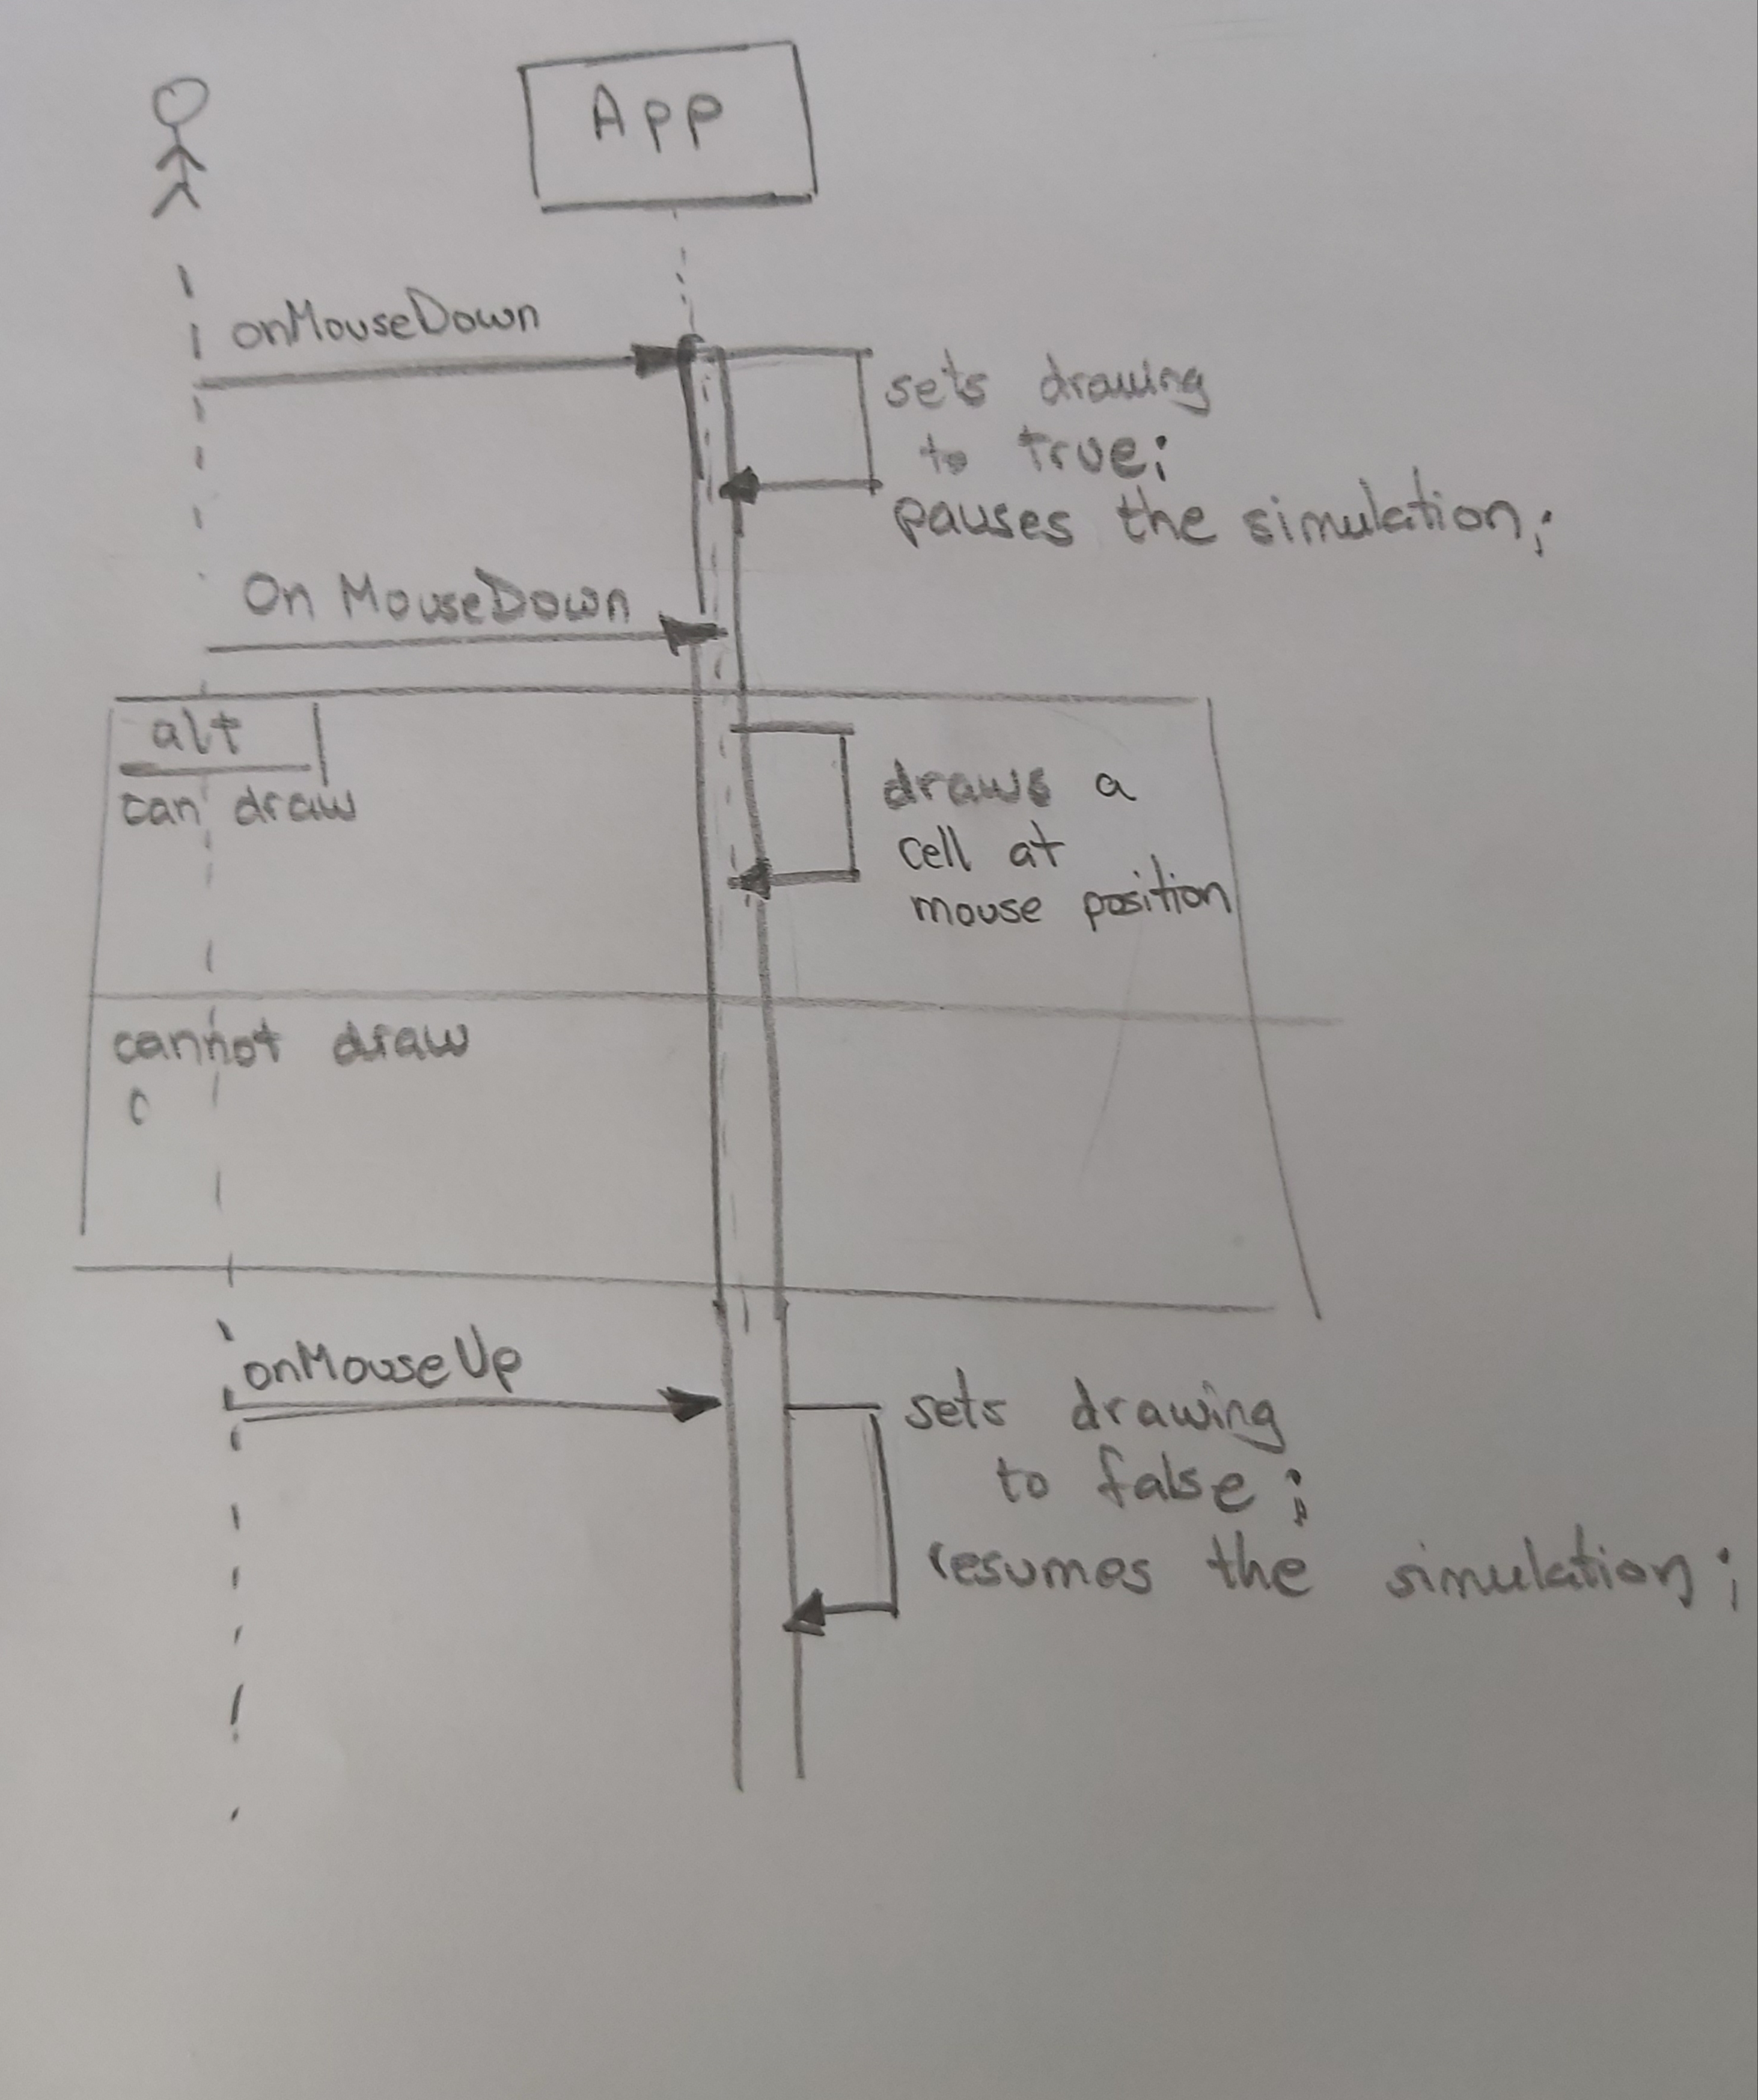 App
onMouseDown
sets drawing
to true;
pauses the simulation;
On MouseDown
alt
can draw
draws a
cell at
mouse position
cannot draw
onMouseUp
sets drawing
to false;
resumes the simulation;